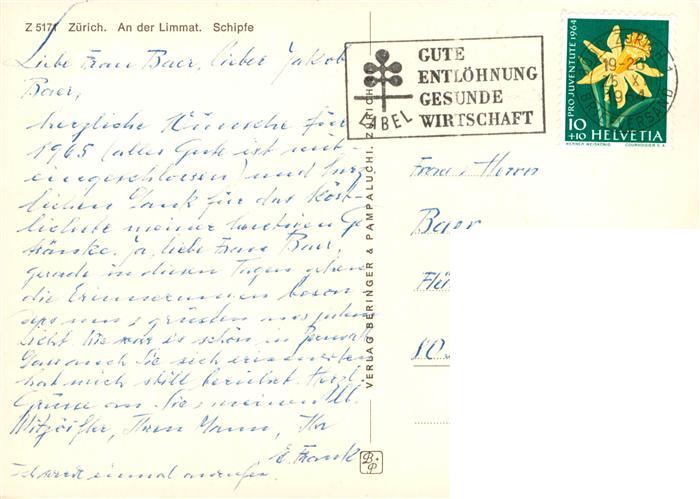 Z 5171 Zürich. An der Limmat. Schipfe
Liebe Frau Baer, lieber Jakob
Baer,
herzliche Wünsche für
1965 (alles Gute ist mit-
eingeschlossen) und herz-
lichen Dank für das Köst-
lichste meiner heutigen Ge-
tränke. Ja, liebe Frau Baer,
gerade in diesen Tagen gehen
die Erinnerungen beson-
ders um &
Licht. Wie war es schön in
Dass auch Sie sich erinnerten
hat mich still berührt. Herzl.
Grüsse an Sie, meinen lb.
Ihren Mann, Ihr
E. Frank
Ich werde einmal anrufen.
VERLAG BERINGER & PAMPALUCHI, ZÜRICH
B+P
GUTE
ENTLÖHNUNG
GESUNDE
WIRTSCHAFT
LIBEL
ZÜRICH
19-20
X
BRIEFVERSAND
PRO JUVENTUTE 1964
10
+10 HELVETIA
WERNER WEISKÖNIG COURVOISIER S.A.
Frau & Herrn
Baer